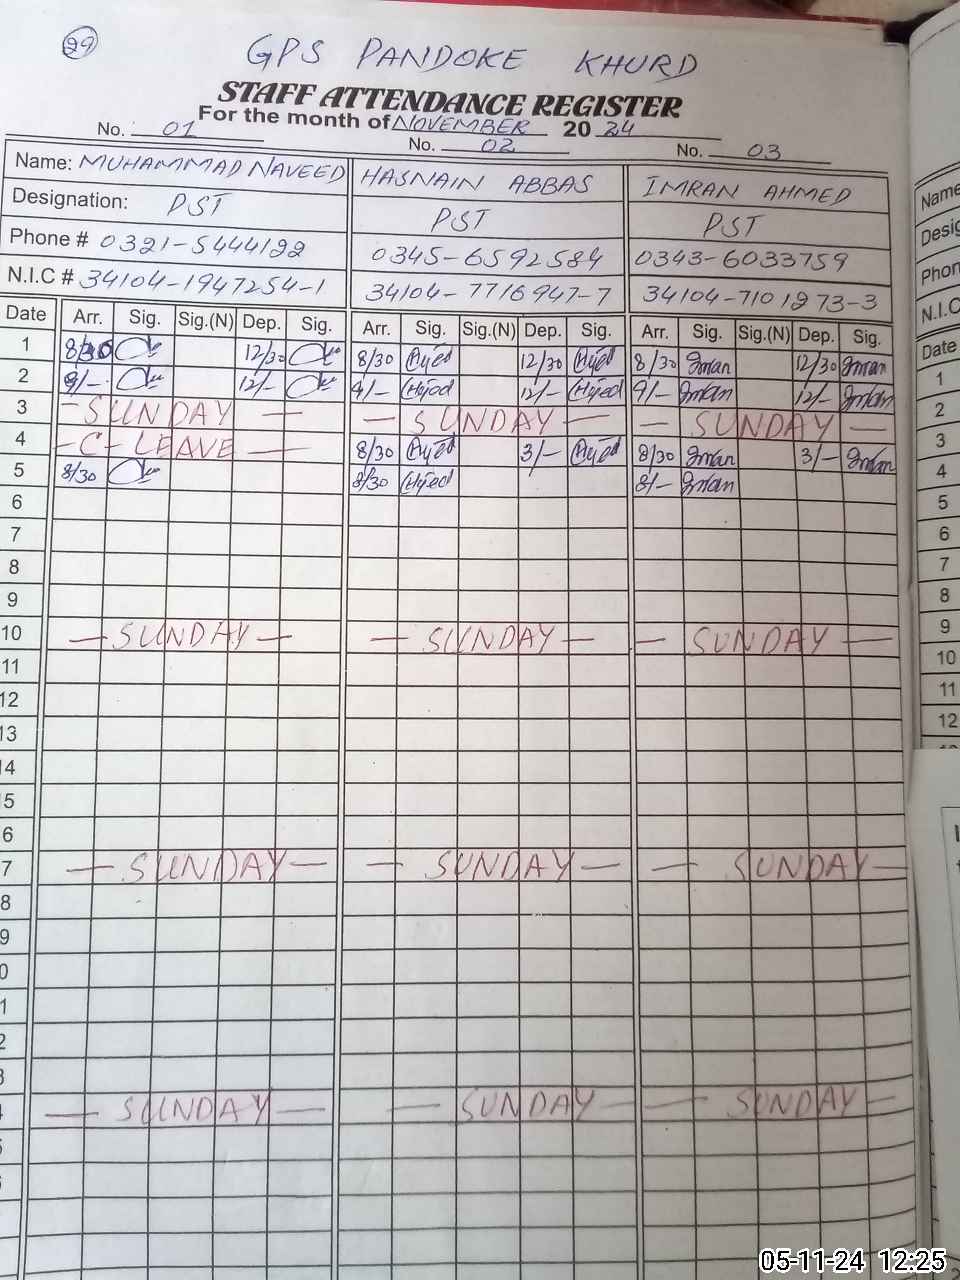 29
GPS PANDOKE KHURD
STAFF ATTENDANCE REGISTER
For the month of NOVEMBER 2024
No. 01 No. 02 No. 03
Name: MUHAMMAD NAVEED HASNAIN ABBAS IMRAN AHMED
Designation: PST PST PST
Phone # 0321-5444122 0345-6592584 0343-6033759
N.I.C # 34104-1947254-1 34104-7716947-7 34104-7101273-3
Date Arr. Sig. Sig.(N) Dep. Sig. Arr. Sig. Sig.(N) Dep. Sig. Arr. Sig. Sig.(N) Dep. Sig.
1 8/30 12/30 8/30 12/30 8/30 Imran 12/30 Imran
2 9/- 12/- 9/- 12/- 9/- Imran 12/- Imran
3 - SUNDAY - - SUNDAY - - SUNDAY -
4 - C - LEAVE - 8/30 3/- 8/30 Imran 3/- Imran
5 8/30 8/30 8/- Imran
6
7
8
9
10 - SUNDAY - - SUNDAY - - SUNDAY -
11
12
13
14
5
6
7 - SUNDAY - - SUNDAY - - SUNDAY -
8
9
0
1
2
3
- SUNDAY - - SUNDAY - - SUNDAY -
Name
Desig
Phon
N.I.C
Date
1
2
3
4
5
6
7
8
9
10
11
12
05-11-24 12:25